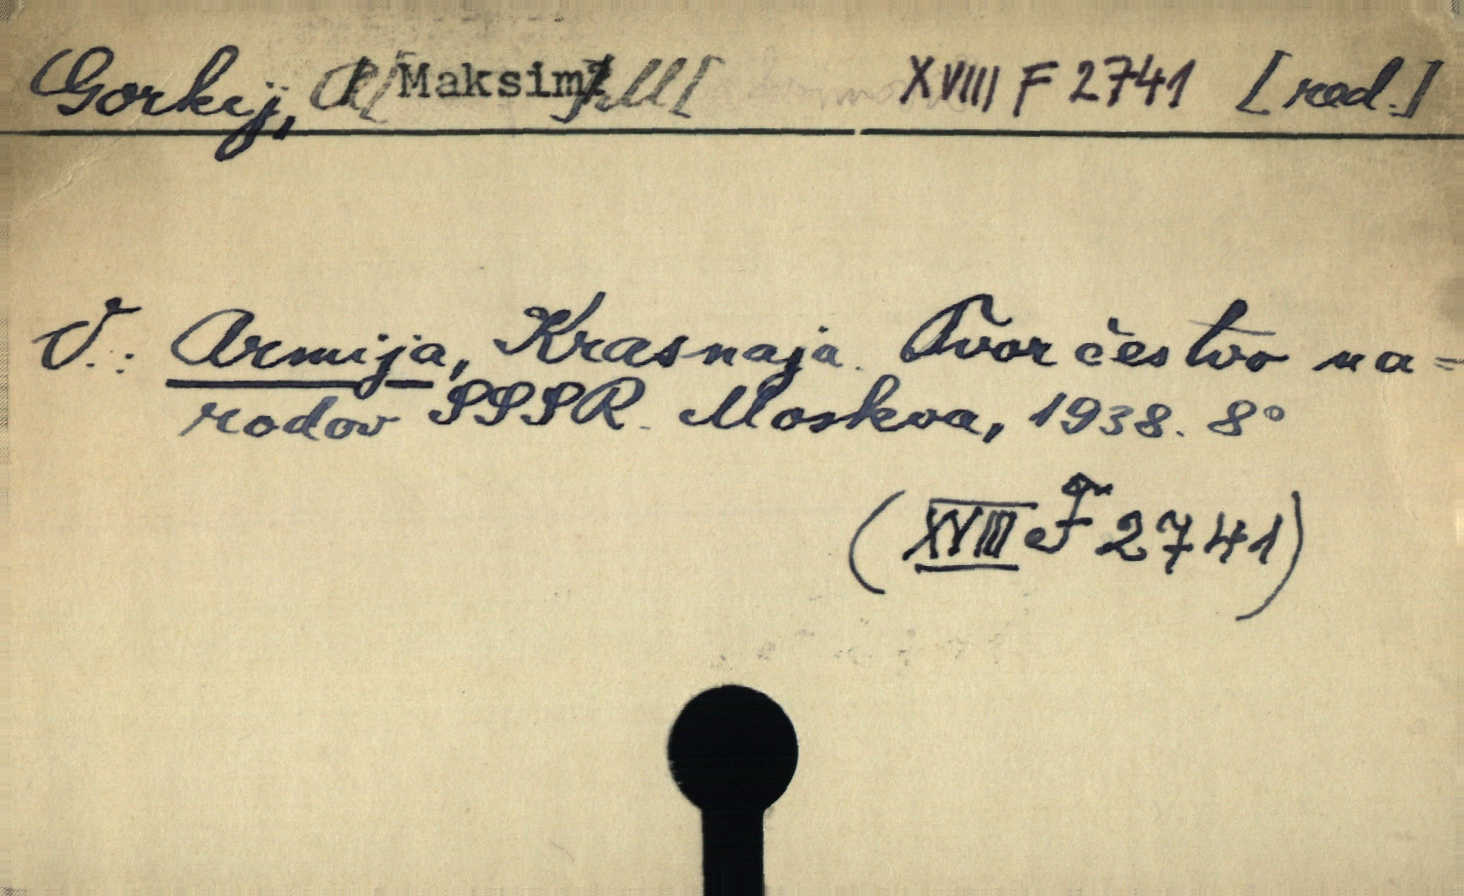 Gorkij, Maksim XVIII F 2741 [red.]
V.: Armija, Krasnaja. Tvorčestvo na=
rodov SSSR. Moskva, 1938. 8°
(XVIII F 2741)